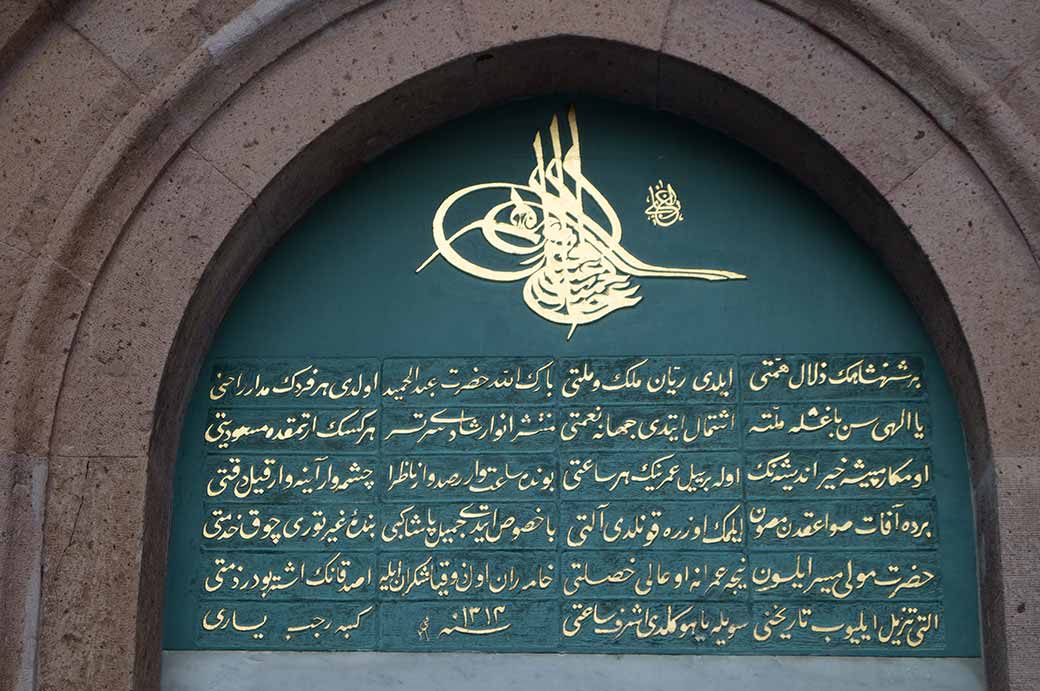 الغازی
بر شهنشاهك ذلال همتی ایلدی ریان ملك و ملتی بارك الله حضرت عبدالحمید اولدی هر فردك مدار راحتی
یا الهی سن باغشله ملته اشتمال ایتدی جهانه نعمتی منتشر انوار شادی سرتسر هر کسك ارتمقده مسعودیتی
او مکارم پیشه خیر اندیشه نك اوله بر ییل عمرینك هر ساعتی بونده ساعت وار رصد وار ناظرا چشمه وار آینه وار قیل دقتی
برده آفات صواعقدن مصون ایلمك اوزره قونلدی آلتی باخصوص ایتدی جمیل پاشا کبی بندهٔ غیرتوری چوق خدمتی
حضرت مولی میسر ایلسون نیجه عمرانه او عالی خصلتی خامه ران اولان وقایه شکران ایله اصدقانك اشته بودر ذمتی
التی تنزیل ایلیوب تاریخنی سویله یاهو کلدی اشرف ساعتی سنه ١٣١٣ کتبه رجب یساری